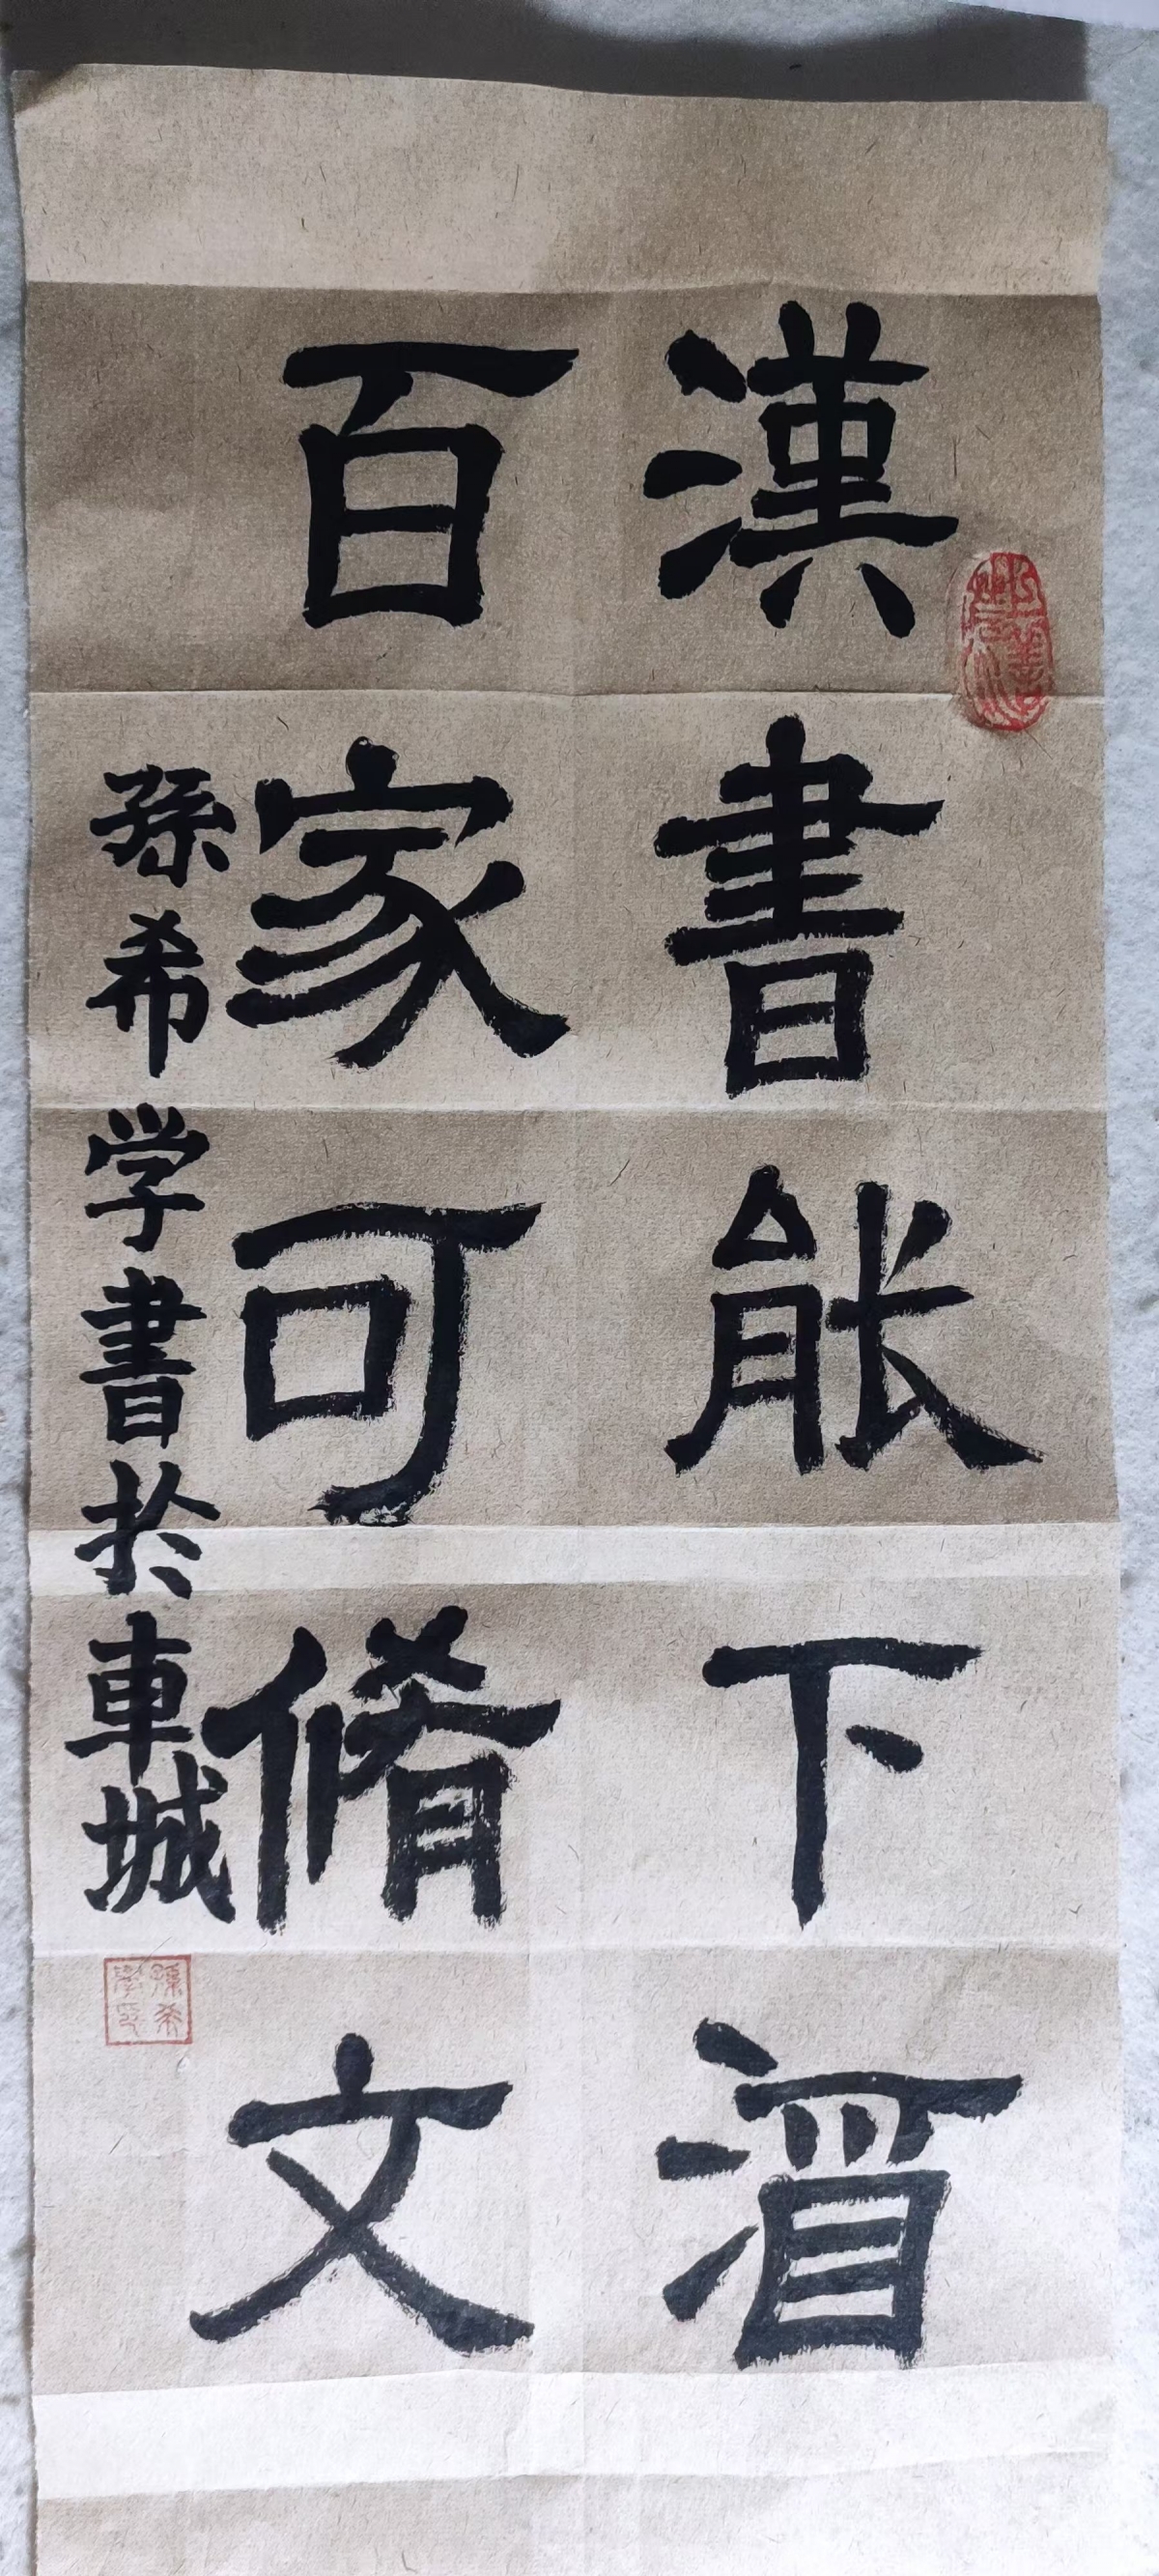 漢書能下酒
百家可脩文
孫希学書於車城
上善若水
孫希學印